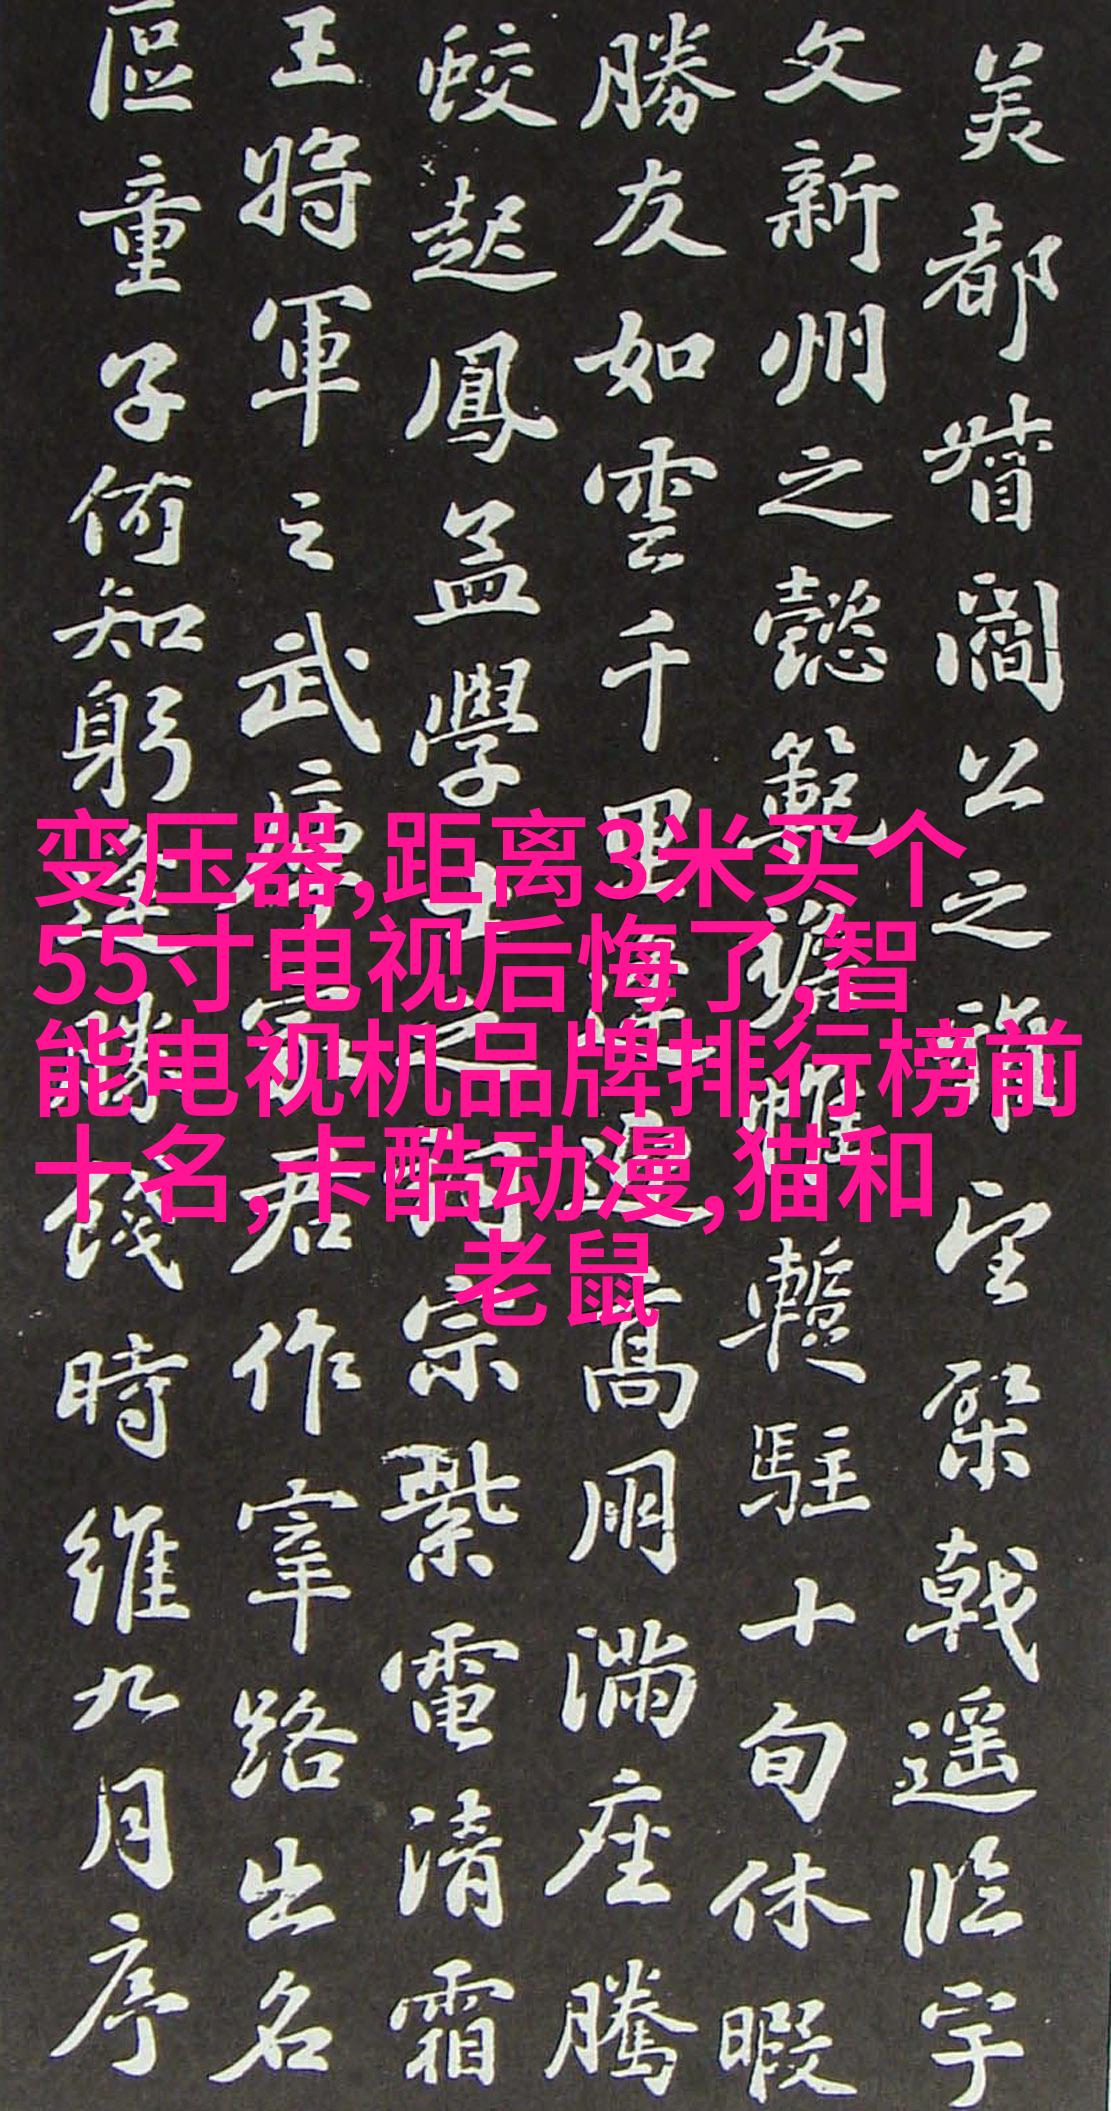 美都督閻公之雅望棨戟遥臨宇
文新州之懿範襜帷暫駐十旬休暇
勝友如雲千里逢迎高朋滿座騰
蛟起鳳孟學士之詞宗紫電清霜
王將軍之武庫家君作宰路出名
區童子何知躬逢勝餞時維九月序
变压器,距离3米买个
55寸电视后悔了,智
能电视机品牌排行榜前
十名,卡酷动漫,猫和
老鼠